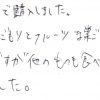 で購入しました。
ごもりとフルーツ
ですが他のものも食べ
した。